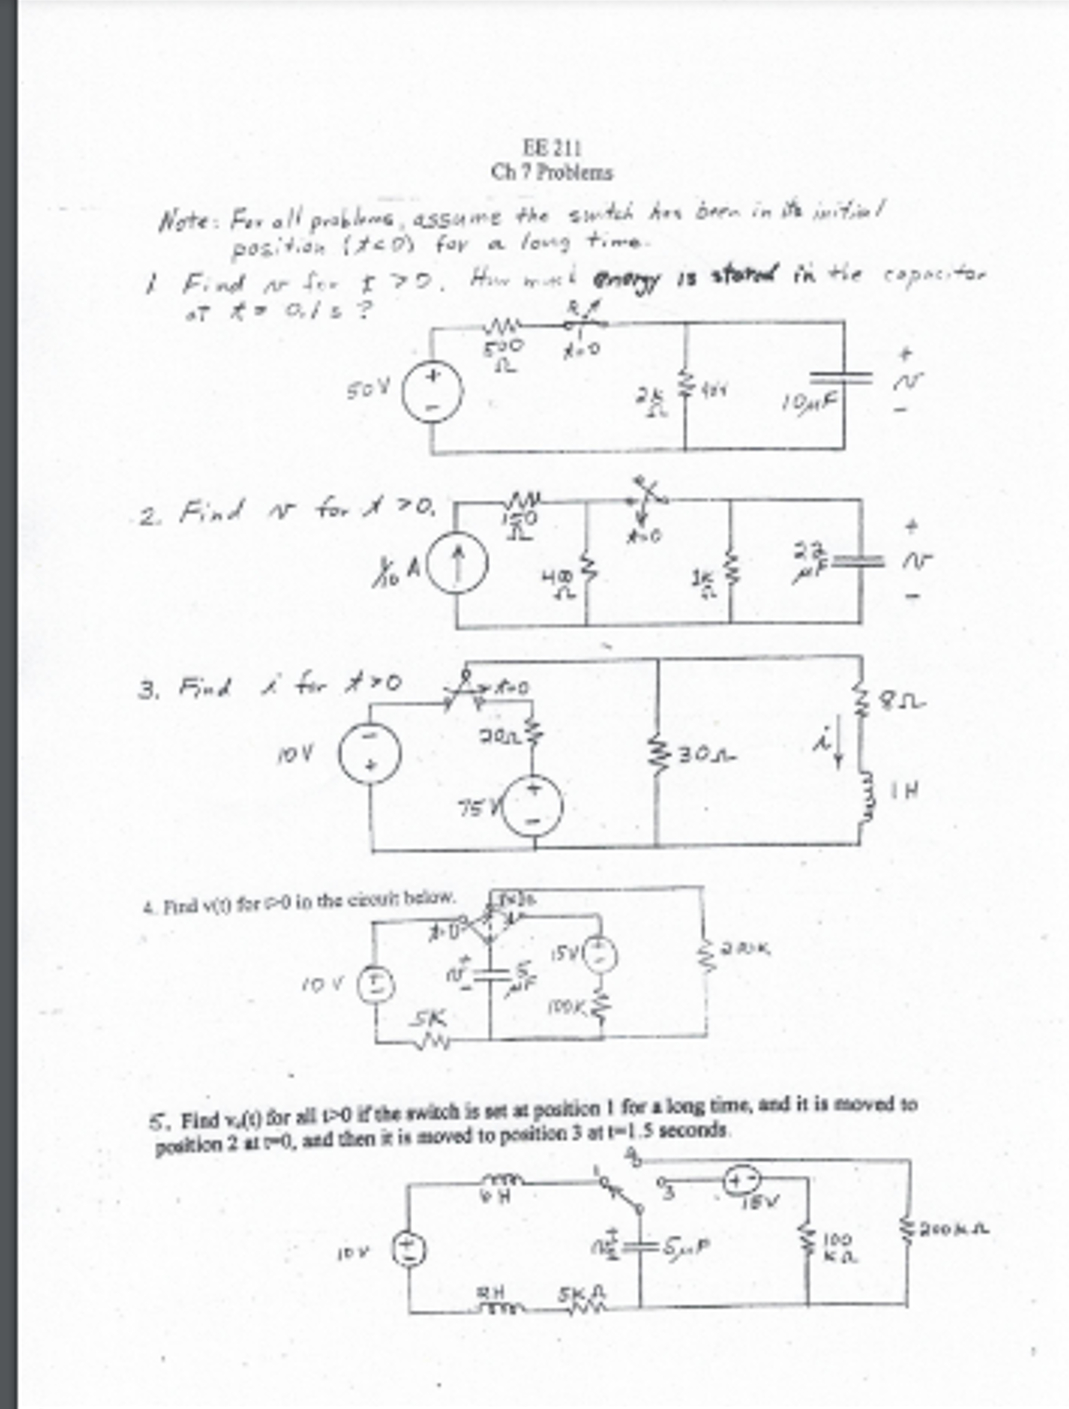 EE 211
Ch 7 Problems
Note: For all problems, assume the switch has been in its initial
position (t<0) for a long time.
1. Find v for t>0. How much energy is stored in the capacitor
at t = 0.1 s ?
500
Ω
t=0
50V
+
-
2k
Ω
10μF
+
v
-
2. Find v for t>0.
150
Ω
t=0
1/10 A
400
Ω
1k
Ω
22
μF
+
v
-
3. Find i for t>0
t=0
8Ω
20Ω
10V
-
+
30Ω
i
75V
+
-
1H
4. Find v(t) for t>0 in the circuit below.
t=0
15V
200K
10V
+
v
-
5
μF
100K
5K
5. Find vc(t) for all t>0 if the switch is set at position 1 for a long time, and it is moved to
position 2 at t=0, and then it is moved to position 3 at t=1.5 seconds.
1
2
3
6H
+ -
15V
10V
+
-
5μF
100
KΩ
200KΩ
2H
5KΩ